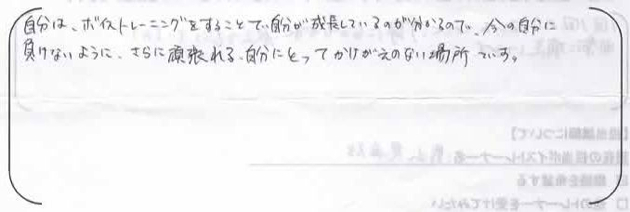 自分は、ボイストレーニングをすることで、自分が成長しているのが分かるので、今の自分に
負けないように、さらに頑張れる、自分にとってかけがえのない場所です。